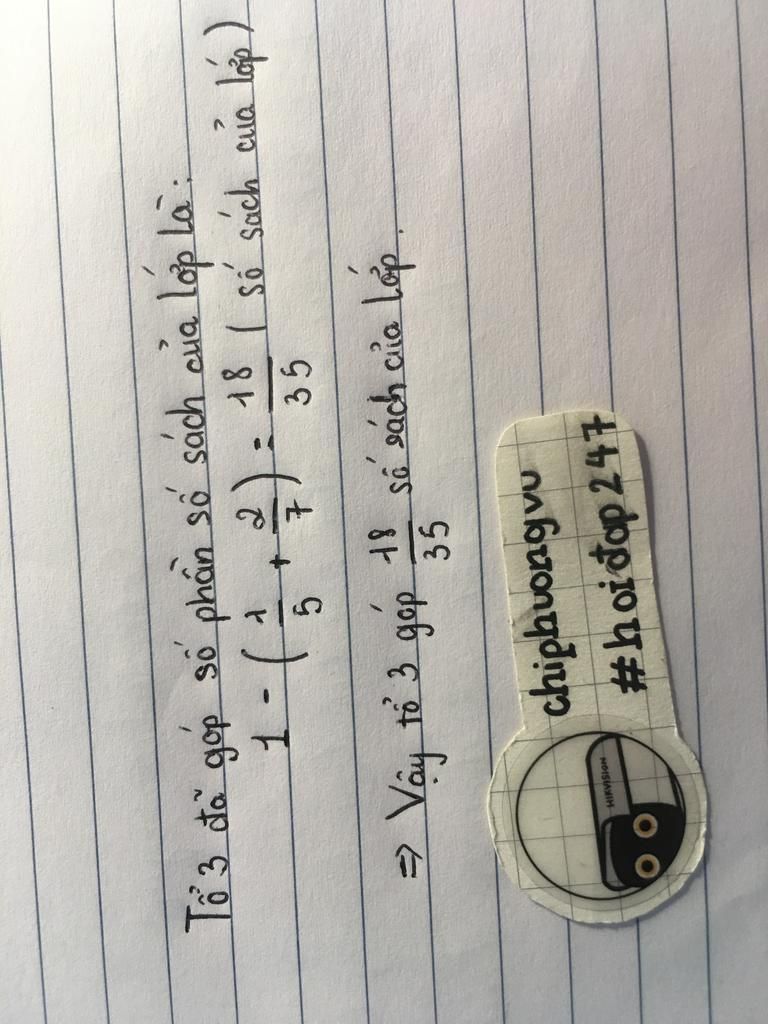 Tổ 3 đã góp số phần số sách của lớp là:
1 - ( 1/5 + 2/7 ) = 18/35 ( số sách của lớp )
=> Vậy tổ 3 góp 18/35 số sách của lớp.
chiphuongvu
#hoidap247
HIKVISION